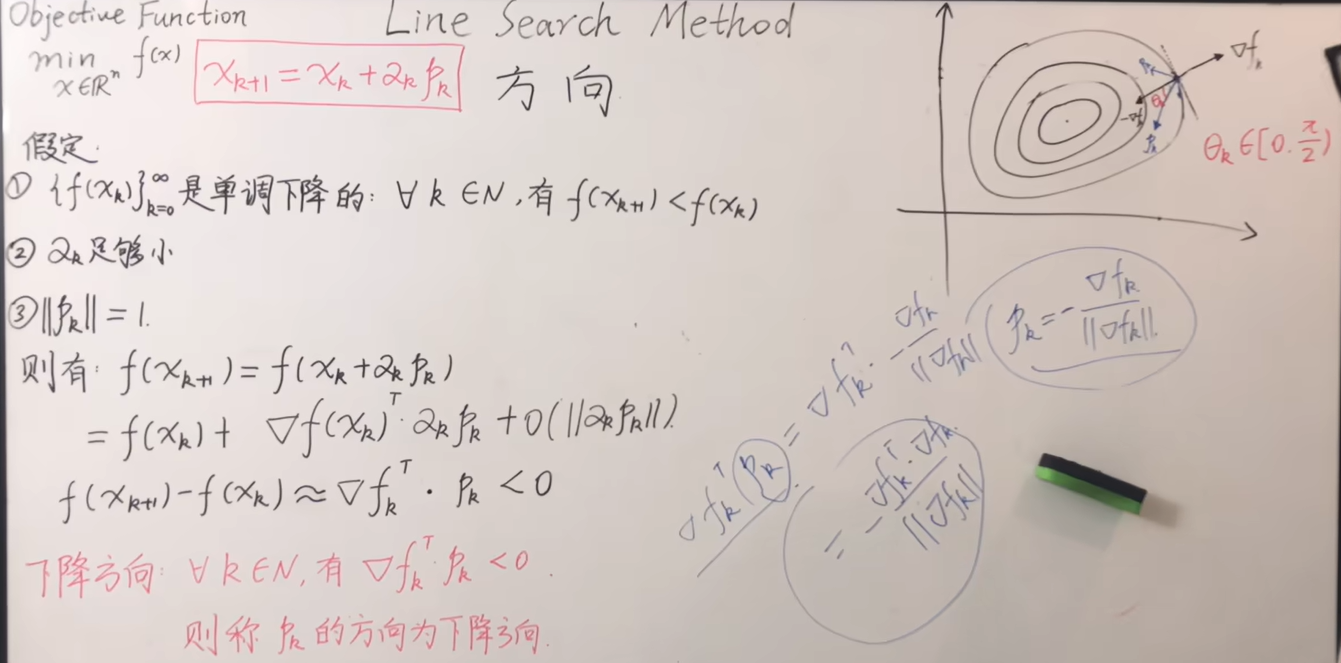 Objective Function
Line Search Method
min f(x)
x∈ℝⁿ
x_{k+1} = x_k + α_k p_k
方向
假定:
① {f(x_k)}_{k=0}^∞ 是单调下降的: ∀ k ∈ N, 有 f(x_{k+1}) < f(x_k)
② α_k 足够小
③ ||p_k|| = 1.
则有: f(x_{k+1}) = f(x_k + α_k p_k)
= f(x_k) + ∇f(x_k)^T · α_k p_k + o(||α_k p_k||).
f(x_{k+1}) - f(x_k) ≈ ∇f_k^T · p_k < 0
下降方向: ∀ k ∈ N, 有 ∇f_k^T · p_k < 0.
则称 p_k 的方向为下降方向.
∇f_k
p_k
θ_k
-∇f_k
p_k
θ_k ∈ [0, π/2)
p_k = - ∇f_k / ||∇f_k||.
∇f_k^T p_k = ∇f_k^T · - ∇f_k / ||∇f_k||
= - ∇f_k^T · ∇f_k / ||∇f_k||